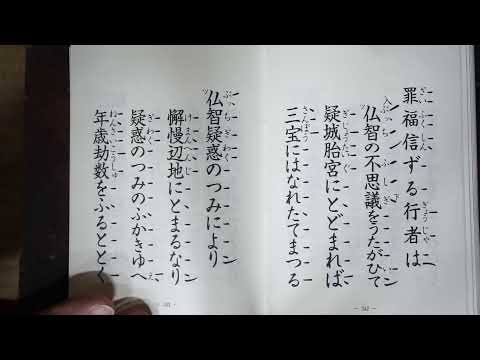 罪福信ずる行者は
仏智の不思議をうたがひて
疑城胎宮にとどまれば
三宝にはなれたてまつる
仏智疑惑のつみにより
懈慢辺地にとまるなり
疑惑のつみのふかきゆへ
年歳劫数をふるととく